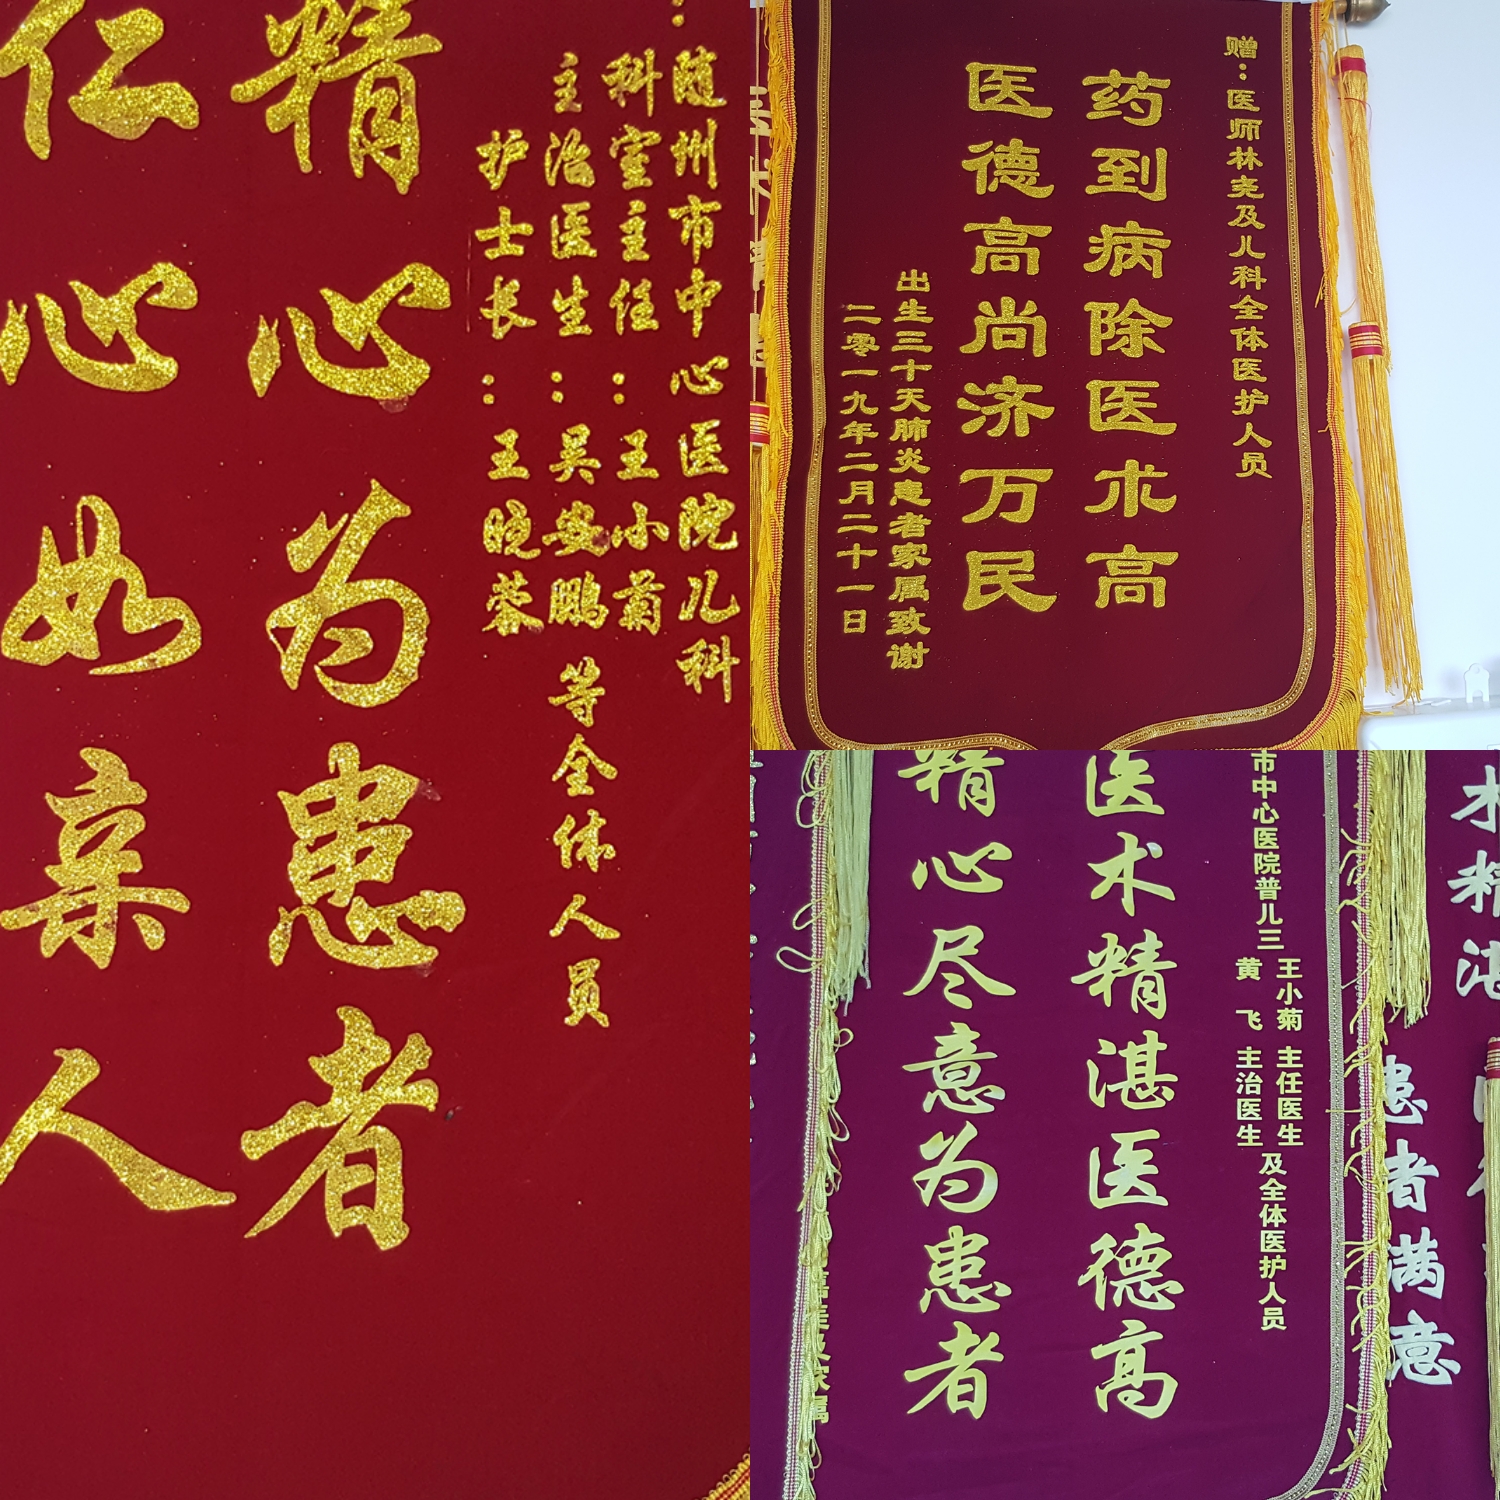 ：随州市中心医院儿科
科室主任：王小菊
主治医生：吴安鹏等全体人员
护士长：王晓蓉
精心为患者
仁心如亲人
赠：医师林尧及儿科全体医护人员
药到病除医术高
医德高尚济万民
出生三十天肺炎患者家属致谢
二零一九年二月二十一日
市中心医院普儿三
王小菊 主任医生
黄飞 主治医生
及全体医护人员
医术精湛医德高
精心尽意为患者
术精湛
患者满意